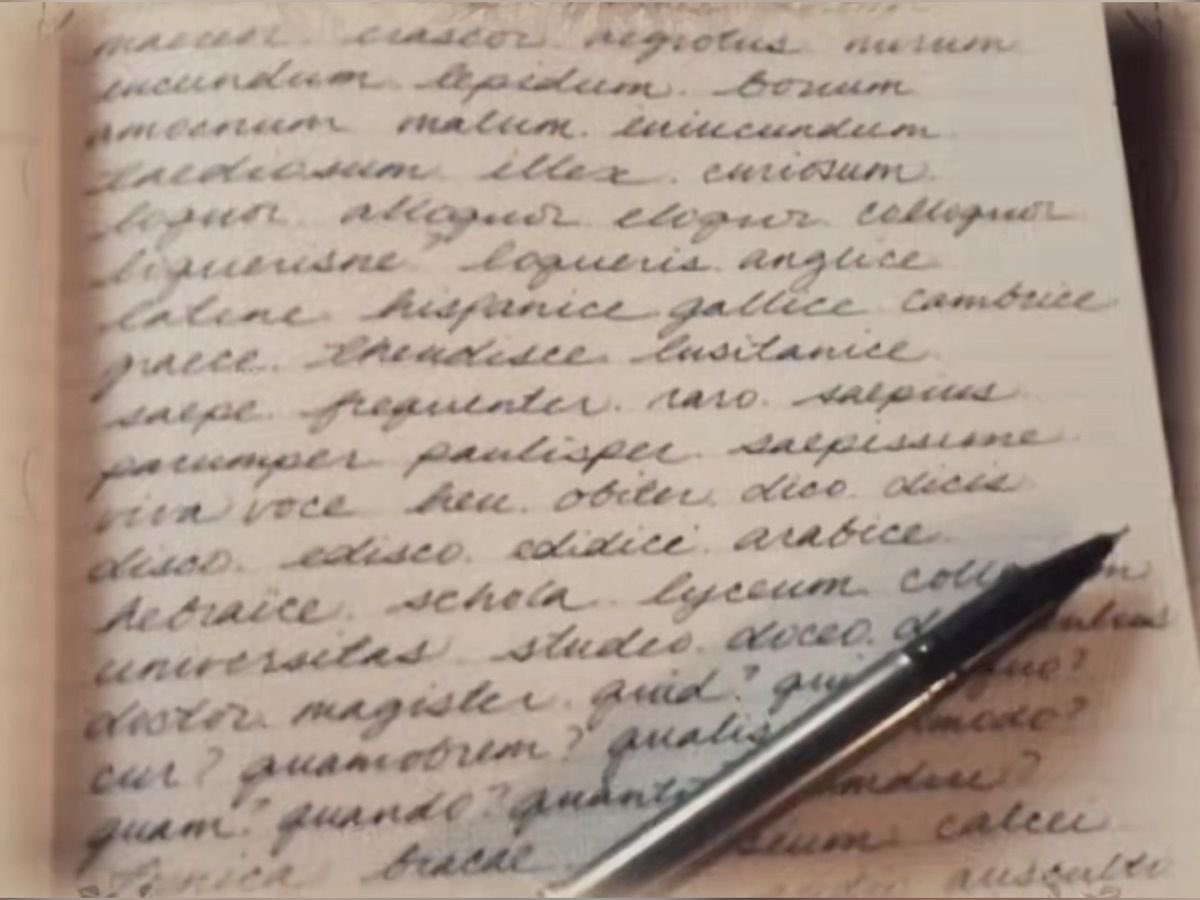 maereor. irascor. aegrotus mirum
iucundum lepidum. bonum
amoenum malum. iniucundum
taediosum illex. curiosum.
loquor alloquor eloquor colloquor
loquerisne loqueris. anglice
latine hispanice gallice cambrice
graece. theudisce lusitanice
saepe. frequenter. raro. saepius
parumper paulisper. saepissime.
viva voce heu. obiter. dico. dicis
disco. edisco. edidici. arabice.
hebraice. schola lyceum
universitas studeo. doceo.
doctor. magister. quid? quo?
cur? quamobrem? qualis
quam? quando?
tunica bracae calcei
ausculto